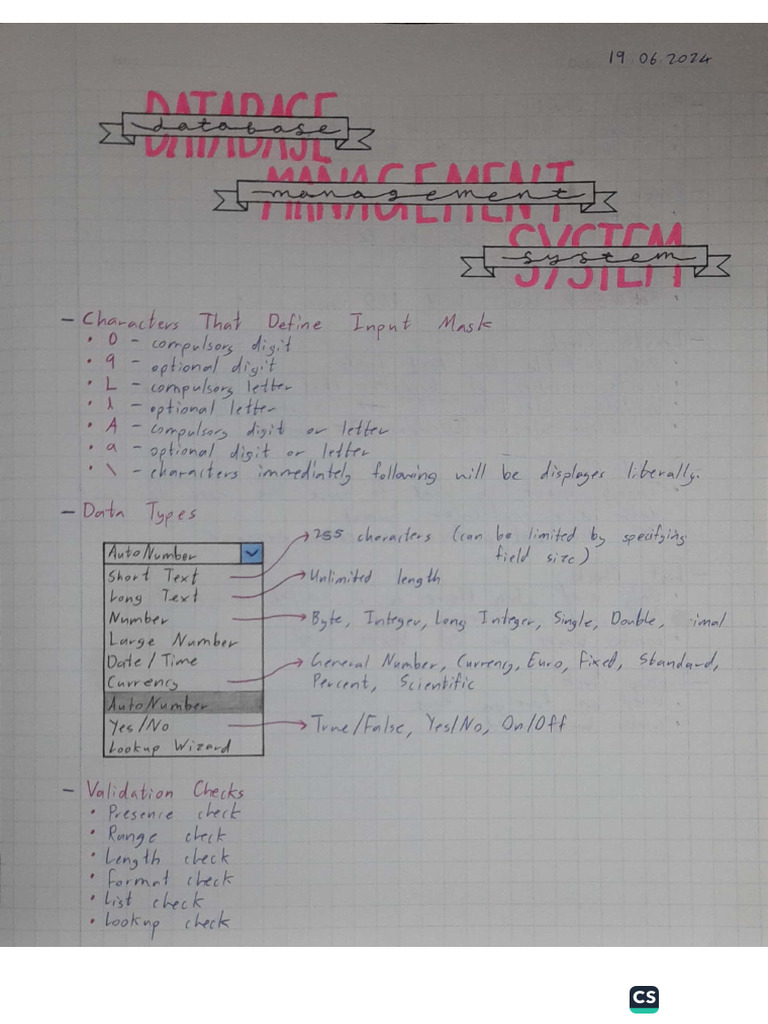 19.06.2024
DATABASE
database
MANAGEMENT
management
SYSTEM
system
- Characters That Define Input Mask
• 0 - compulsory digit
• 9 - optional digit
• L - compulsory letter
• l - optional letter
• A - compulsory digit or letter
• a - optional digit or letter
• \ - characters immediately following will be displayes liberally.
- Data Types
AutoNumber
Short Text → 255 characters (can be limited by specifying
field size)
Long Text → Unlimited length
Number → Byte, Integer, Long Integer, Single, Double, imal
Large Number
Date/Time
Currency → General Number, Currency, Euro, Fixed, Standard,
Percent, Scientific
AutoNumber
Yes/No → True/False, Yes/No, On/Off
Lookup Wizard
- Validation Checks
• Presence check
• Range check
• Length check
• Format check
• List check
• Lookup check
CS